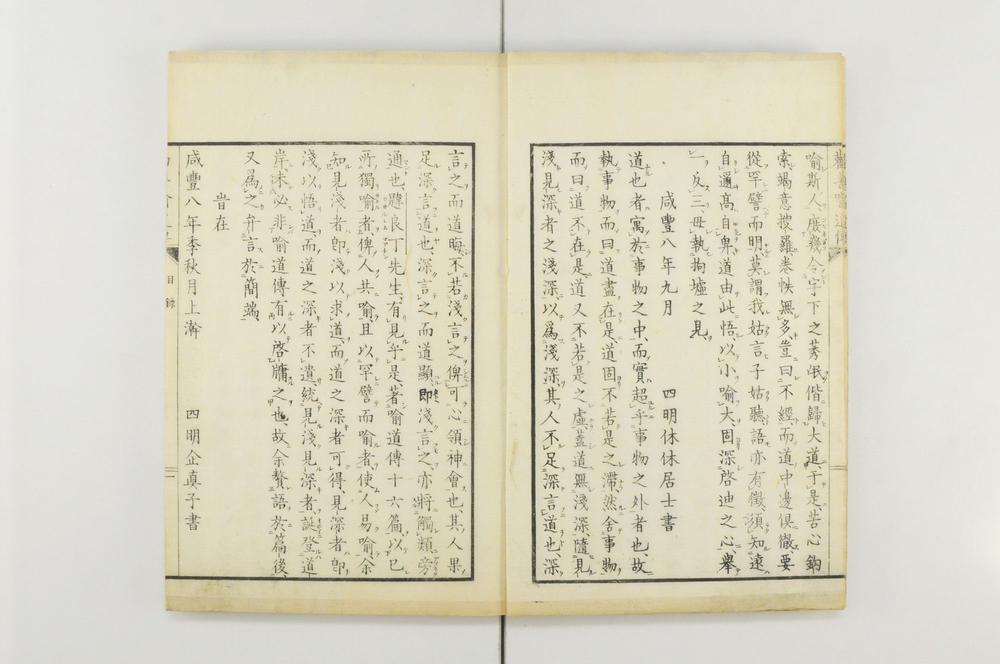 喻斯人庶幾令宇下之莠氓偕歸大道于是苦心鈎
索竭意搜羅卷帙無多豈曰不經而道中邊俱徹要
從罕譬而明莫謂我姑言子姑聽語亦有徵須知遠
自邇高自卑道由此悟以小喻大固深啓迪之心舉
一反三毋執拘墟之見
咸豐八年九月　四明休休居士書
道也者寓於事物之中而實超乎事物之外者也故
執事物而曰道盡在是道固不若是之滯然舍事物
而曰道不在是道又不若是之虛蓋道無淺深隨見
淺見深者之淺深以爲淺深其人不足深言道也深
言之而道晦不若淺言之俾可心領神會也其人果
足深言道也深言之而道顯即淺言之亦將觸類旁
通也夢良丁先生有見乎是著喻道傳十六篇以已
所獨喻者俾人共喻且以罕譬而喻者使人易喻余
知見淺者即淺以求道而道之深者可得見深者即
淺以悟道而道之深者不遺統見淺見深者誕登道
岸未必非喻道傳有以啓牖之也故余贅語於篇後
又爲之弁言於簡端
旹在
咸豐八年季秋月上澣　四明企眞子書
目錄